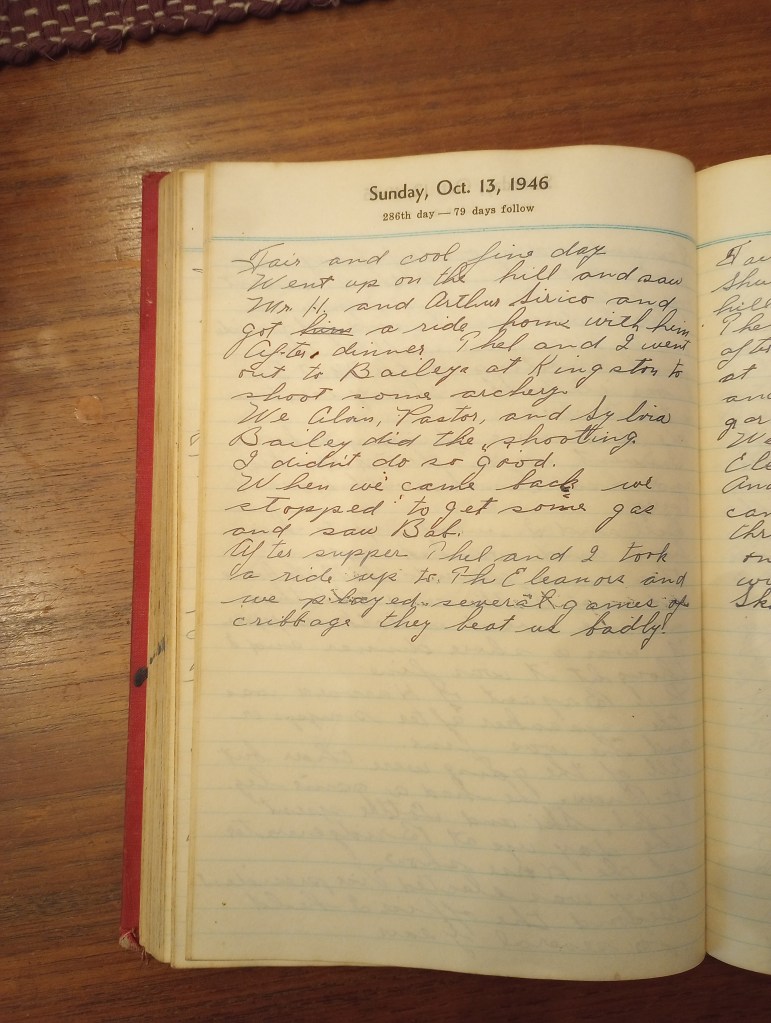 Sunday, Oct. 13, 1946
286th day — 79 days follow
Fair and cool fine day
Went up on the hill and saw
Mr. H. and Arthur Sirico and
got him a ride home with him
After dinner Thel and I went
out to Baileys at Kingston to
shoot some archery.
We Alvin, Pastor, and Sylvia
Bailey did the shooting.
I didn't do so good.
When we came back we
stopped to get some gas
and saw Bab.
After supper Thel and I took
a ride up to Th Eleanors and
we played several games of
cribbage they beat us badly.
Fair
hill
The
after
at
and
We
And
on